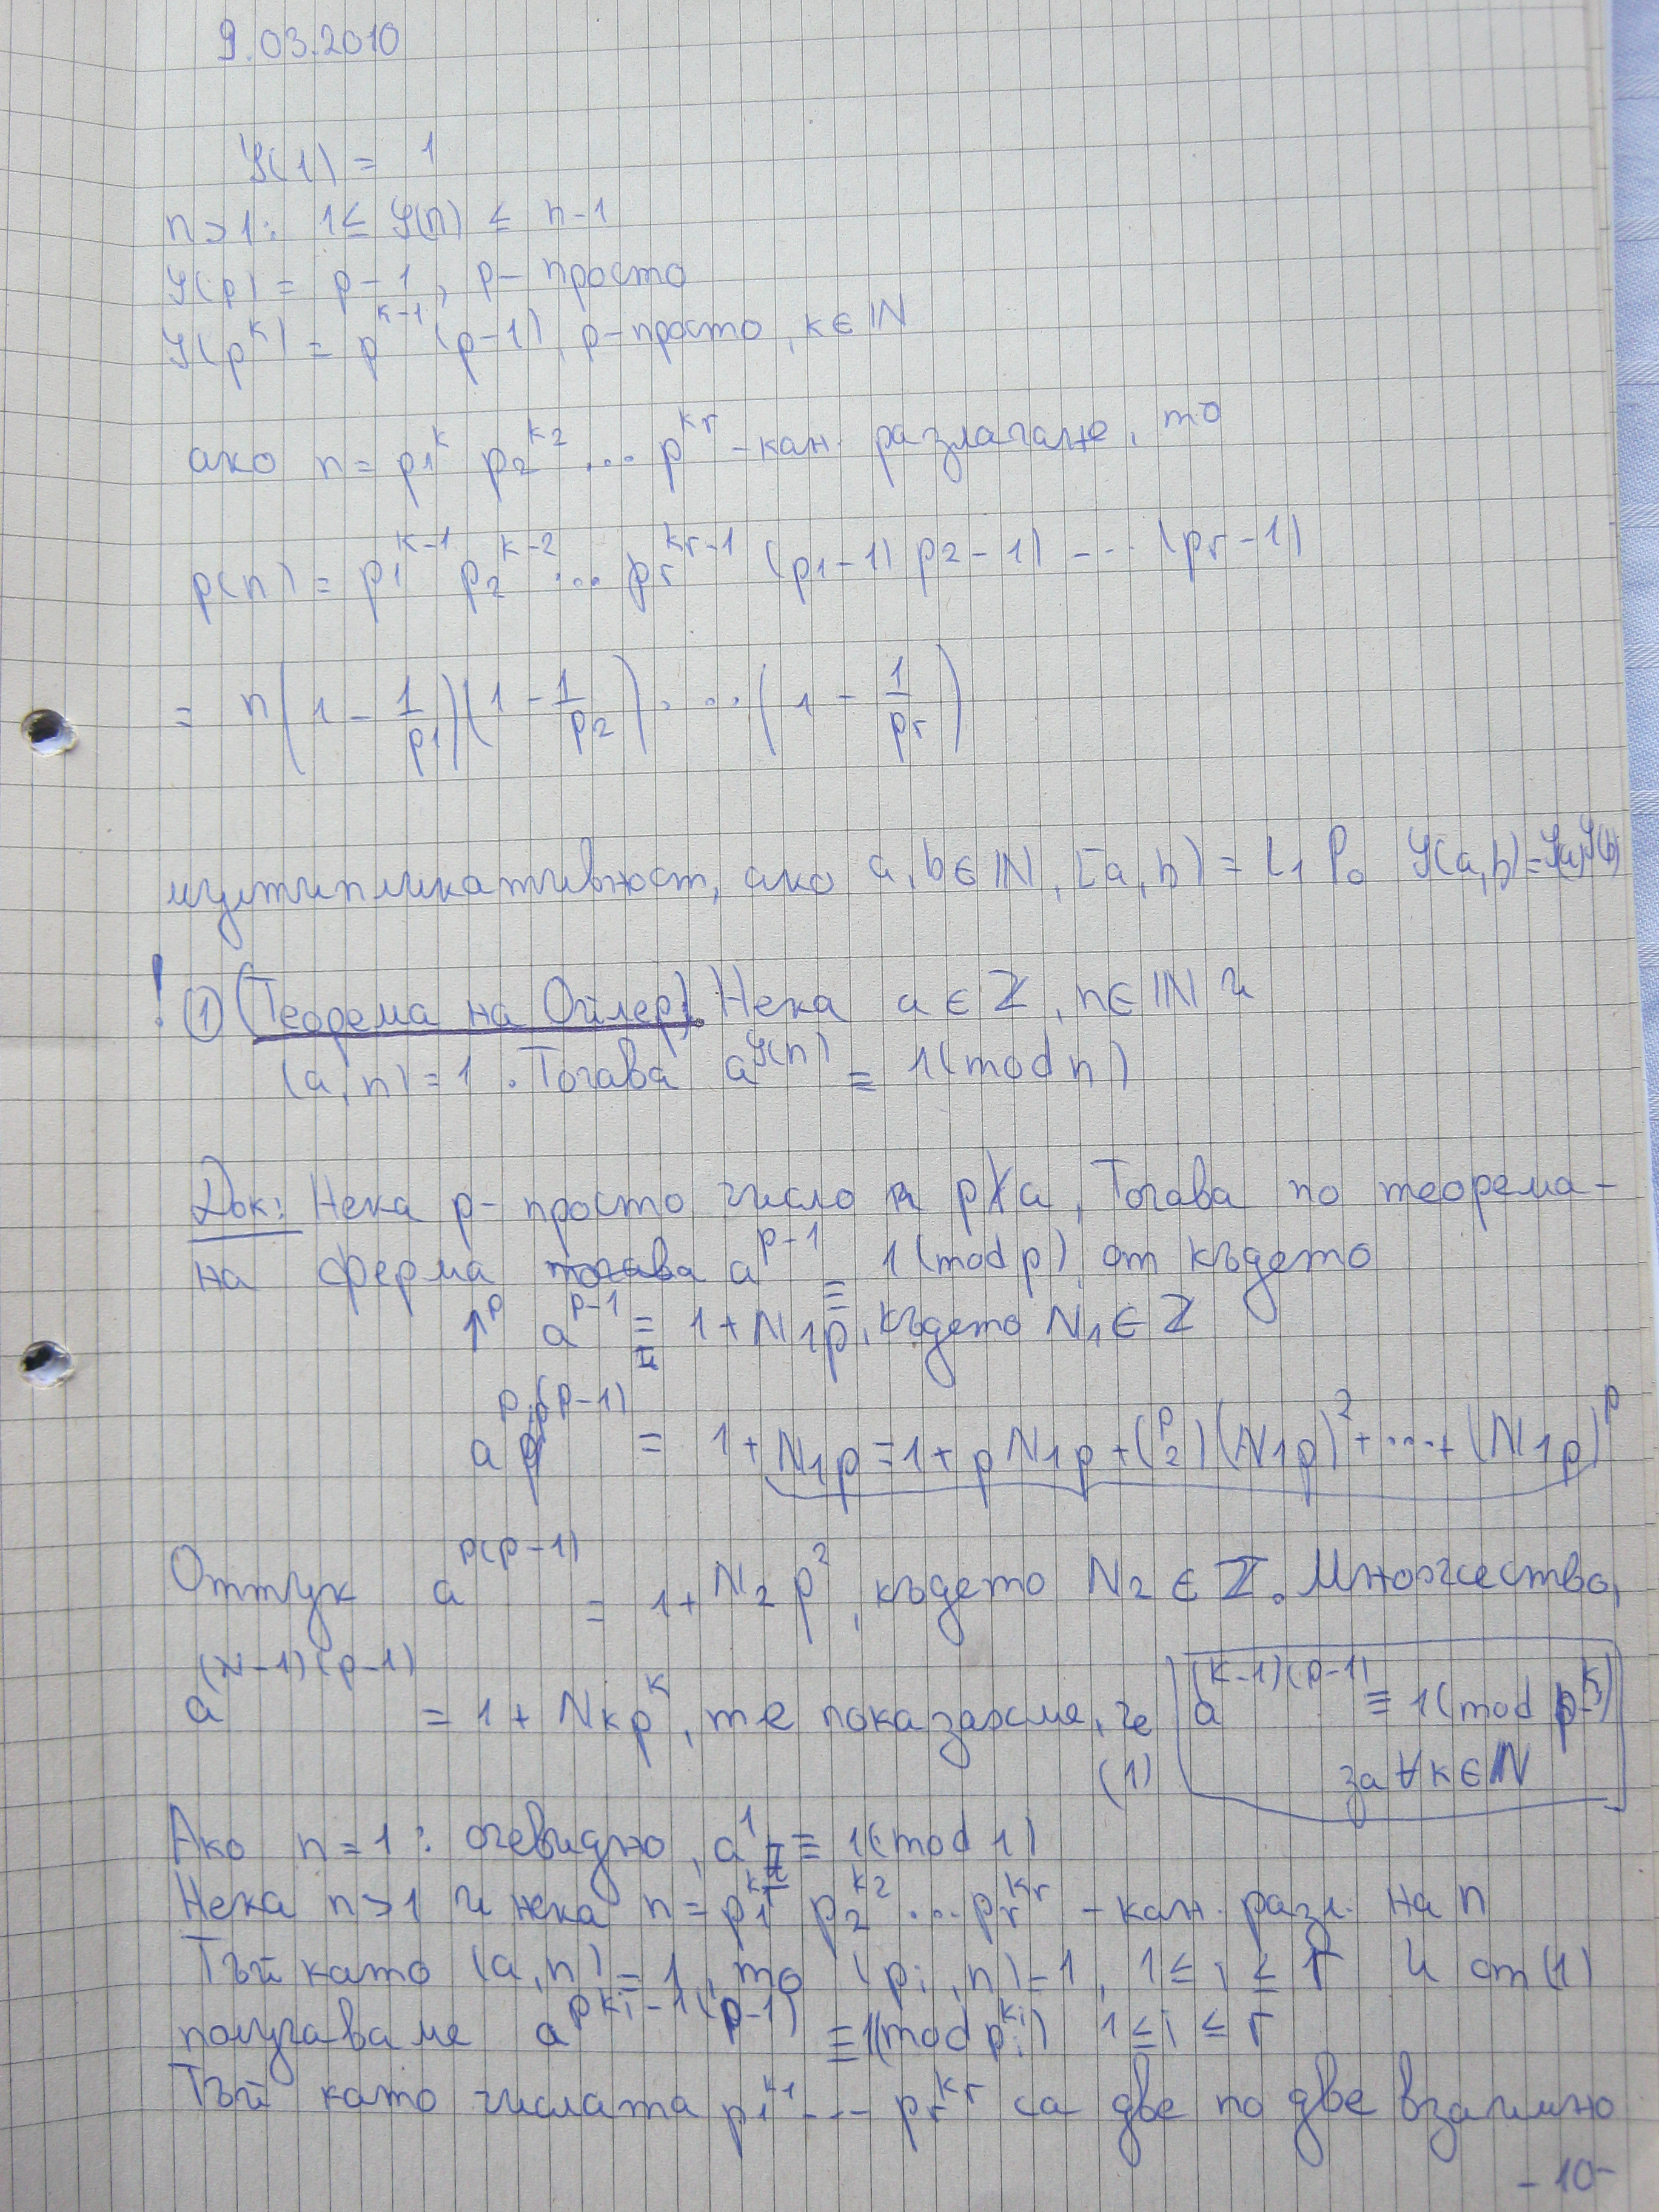 9.03.2010
φ(1) = 1
n>1: 1 ≤ φ(n) ≤ n-1
φ(p) = p-1, p- просто
φ(p^k) = p^{k-1} (p-1), p-просто, k∈ℕ
ако n = p_1^k p_2^{k_2} ... p^{k_r} -кан. разлагане, то
p(n) = p_1^{k-1} p_2^{k-2} ... p_r^{k_r-1} (p_1-1) p_2-1) --- (p_r-1)
= n(1 - 1/p_1)(1 - 1/p_2) ... (1 - 1/p_r)
мултипликативност, ако a, b∈ℕ, (a, b) = φ(a,b)=φ(a)φ(b)
! ① (Теорема на Ойлер). Нека a∈ℤ, n∈ℕ и
(a,n)=1. Тогава a^{φ(n)} ≡ 1(mod n)
Док: Нека p- просто число и p∤a, Тогава по теорема-
на ферма тогава a^{p-1} ≡ 1(mod p), от където
a^{p-1} = 1+N_1p, където N_1∈ℤ
a^{p(p-1)} = 1+N_1p=1+pN_1p+(p 2)(N_1p)^2+...+(N_1p)^p
Оттук a^{p(p-1)} = 1+N_2p^2, където N_2∈ℤ. Множество,
a^{(N-1)(p-1)} = 1+N_kp^k, те показахме, че a^{(k-1)(p-1)} ≡ 1(mod p^k)
(1) за ∀k∈ℕ
Ако n=1: очевидно, a^1 ≡ 1(mod 1)
Нека n>1 и нека n=p_1^{k_1} p_2^{k_2} ... p_r^{k_r} -кан. разл. на n
Тъй като (a,n)=1, то (p_i,n)=1, 1≤i≤r И от (1)
получаваме a^{pk_i-1(p-1)} ≡1(mod p_i^{k_i}) 1≤i≤r
Тъй като числата p_1^{k_1} --- p_r^{k_r} са две по две взаимно
-10-